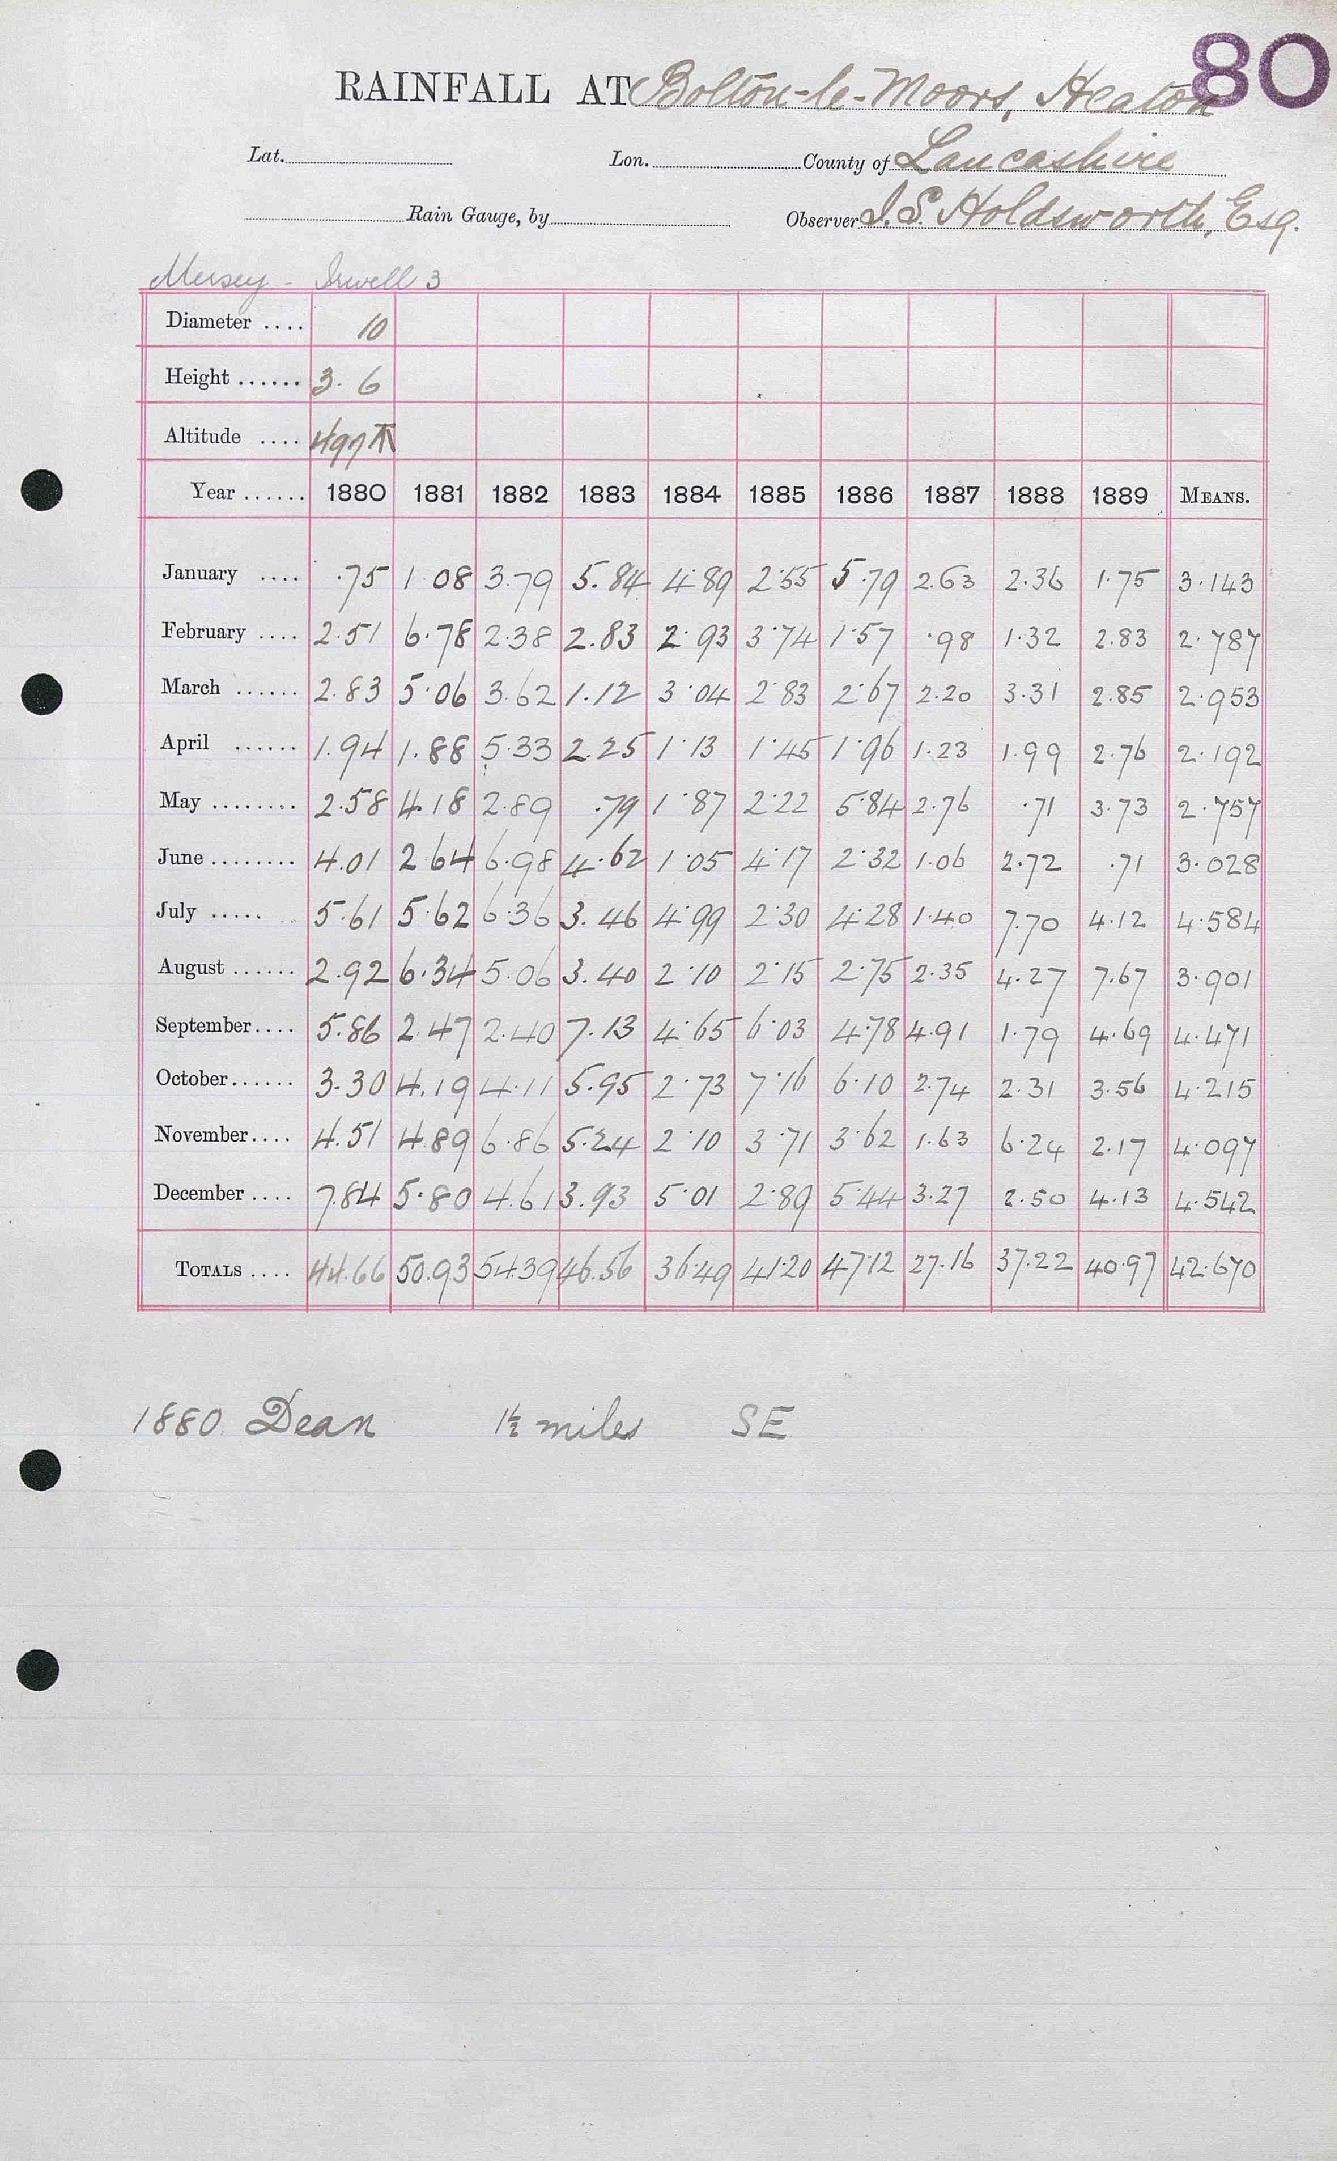 80
RAINFALL AT Bolton-le-Moors, Heaton
Lat. Lon. County of Lancashire
Rain Gauge, by Observer J. S. Holdsworth, Esq.
Mersey - Irwell 3
Diameter .... 10
Height ...... 3. 6
Altitude .... 497
Year ...... 1880 1881 1882 1883 1884 1885 1886 1887 1888 1889 MEANS.
January .... .75 1.08 3.79 5.84 4.89 2.55 5.79 2.63 2.36 1.75 3.143
February .... 2.51 6.78 2.38 2.83 2.93 3.74 1.57 .98 1.32 2.83 2.787
March ...... 2.83 5.06 3.62 1.12 3.04 2.83 2.67 2.20 3.31 2.85 2.953
April ...... 1.94 1.88 5.33 2.25 1.13 1.45 1.96 1.23 1.99 2.76 2.192
May ........ 2.58 4.18 2.89 .79 1.87 2.22 5.84 2.76 .71 3.73 2.757
June ........ 4.01 2.64 6.98 4.62 1.05 4.17 2.32 1.06 2.72 .71 3.028
July ..... 5.61 5.62 6.36 3.46 4.99 2.30 4.28 1.40 7.70 4.12 4.584
August ...... 2.92 6.34 5.06 3.40 2.10 2.15 2.75 2.35 4.27 7.67 3.901
September.... 5.86 2.47 2.40 7.13 4.65 6.03 4.78 4.91 1.79 4.69 4.471
October...... 3.30 4.19 4.11 5.95 2.73 7.16 6.10 2.74 2.31 3.56 4.215
November.... 4.51 4.89 6.86 5.24 2.10 3.71 3.62 1.63 6.24 2.17 4.097
December .... 7.84 5.80 4.61 3.93 5.01 2.89 5.44 3.27 2.50 4.13 4.542
TOTALS .... 44.66 50.93 54.39 46.56 36.49 41.20 47.12 27.16 37.22 40.97 42.670
1880 Dean 1½ miles SE